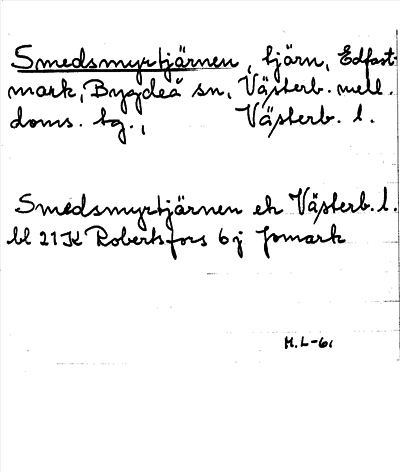 Smedsmyrtjärnen, tjärn, Edfast-
mark, Bygdeå sn, Västerb. mell.
doms. tg., Västerb. l.
Smedsmyrtjärnen ek Västerb. l.
bl 21K Robertsfors 6j Jomark
H.L-61